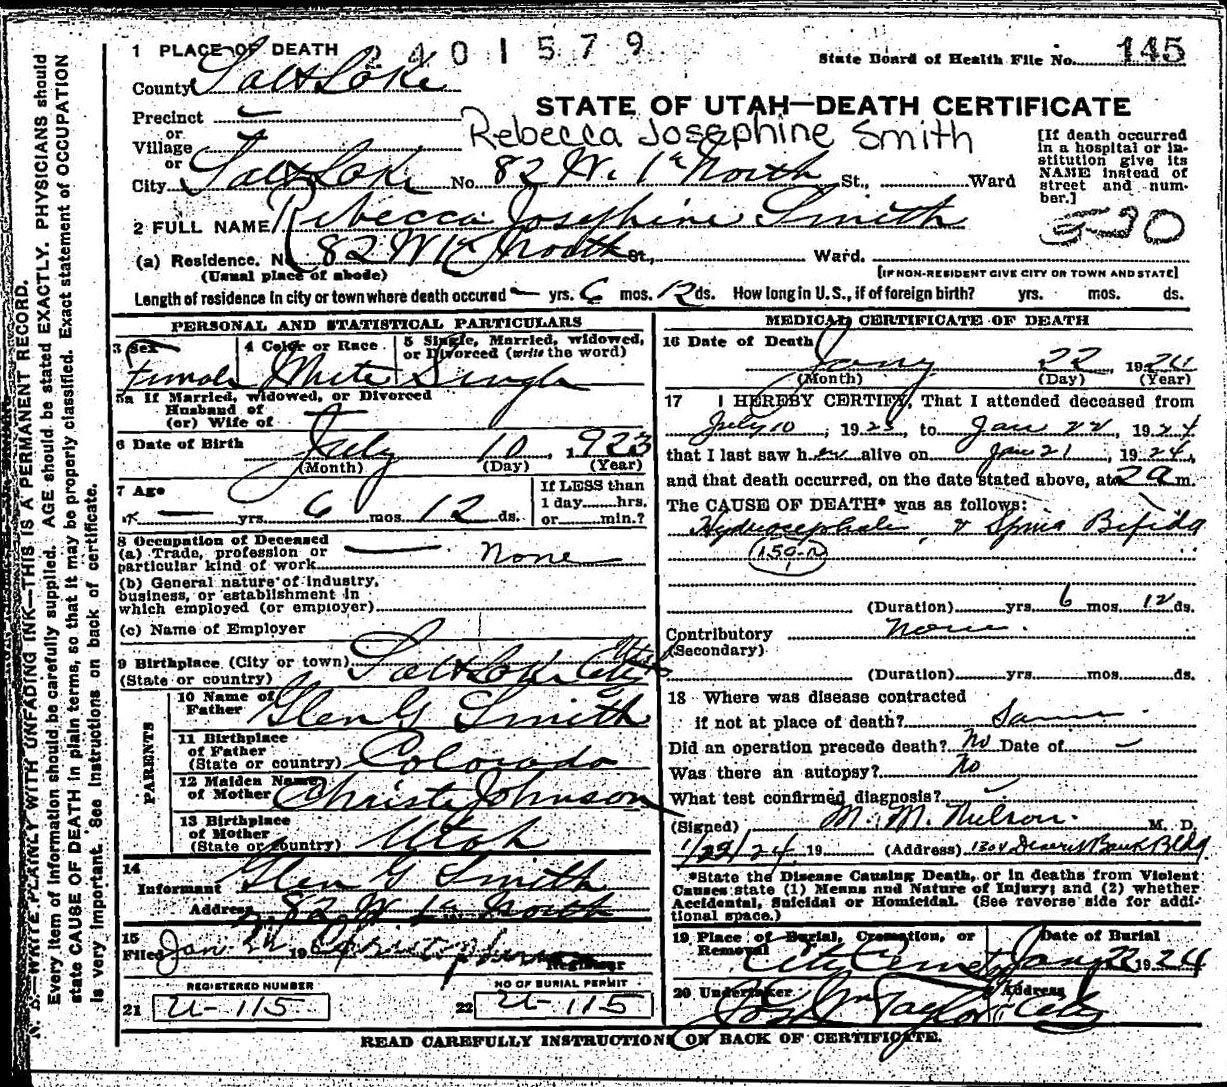 1 PLACE OF DEATH
2401579
State Board of Health File No. 145
County Salt Lake
STATE OF UTAH—DEATH CERTIFICATE
Precinct
or
Village
or
City Salt Lake No. 82 W. 1st North St., Ward
Rebecca Josephine Smith
[If death occurred in a hospital or institution give its NAME instead of street and number.]
2 FULL NAME Rebecca Josephine Smith
(a) Residence. No. 82 W 1st North St., Ward.
(Usual place of abode)
[IF NON-RESIDENT GIVE CITY OR TOWN AND STATE]
Length of residence in city or town where death occured — yrs. 6 mos. 12 ds. How long in U. S., if of foreign birth? yrs. mos. ds.
PERSONAL AND STATISTICAL PARTICULARS
3 Sex Female
4 Color or Race White
5 Single, Married, widowed, or Divorced (write the word) Single
5a If Married, widowed, or Divorced
Husband of
(or) Wife of
6 Date of Birth July 10, 1923
(Month) (Day) (Year)
7 Age — yrs. 6 mos. 12 ds.
If LESS than 1 day hrs. or min.?
8 Occupation of Deceased
(a) Trade, profession or particular kind of work — none
(b) General nature of industry, business, or establishment in which employed (or employer)
(c) Name of Employer
9 Birthplace (City or town) Salt Lake City Utah
(State or country)
PARENTS
10 Name of Father Glen G Smith
11 Birthplace of Father (State or country) Colorado
12 Maiden Name of Mother Christe Johnson
13 Birthplace of Mother (State or country) Utah
14
Informant Glen G Smith
Address 82 W 1st North
15
Filed Jan 24 19
Registrar
REGISTERED NUMBER
21 U-115
NO OF BURIAL PERMIT
22 U-115
MEDICAL CERTIFICATE OF DEATH
16 Date of Death Jany 22, 1924
(Month) (Day) (Year)
17 I HEREBY CERTIFY, That I attended deceased from
July 10, 1923, to Jan 22, 1924
that I last saw her alive on Jan 21, 1924,
and that death occurred, on the date stated above, at 2 a m.
The CAUSE OF DEATH* was as follows:
Hydrocephalus & Spina Bifida
(Duration) yrs. 6 mos. 12 ds.
Contributory none.
(Secondary)
(Duration) yrs. mos. ds.
18 Where was disease contracted
if not at place of death? Same
Did an operation precede death? No Date of —
Was there an autopsy? No
What test confirmed diagnosis?
(Signed) M. M. Nielson. M. D.
1/22/24, 19 (Address) 1304 Deseret Bank Bldg
*State the Disease Causing Death, or in deaths from Violent
Causes state (1) Means and Nature of Injury; and (2) whether
Accidental, Suicidal or Homicidal. (See reverse side for additional space.)
19 Place of Burial, Cremation, or Removal City Cemetery
Date of Burial Jany 22 1924
20 Undertaker Jos Wm Taylor
Address City
READ CAREFULLY INSTRUCTIONS ON BACK OF CERTIFICATE.
N. B.—WRITE PLAINLY WITH UNFADING INK—THIS IS A PERMANENT RECORD.
Every item of information should be carefully supplied. AGE should be stated EXACTLY. PHYSICIANS should
state CAUSE OF DEATH in plain terms, so that it may be properly classified. Exact statement of OCCUPATION
is very important. See instructions on back of certificate.